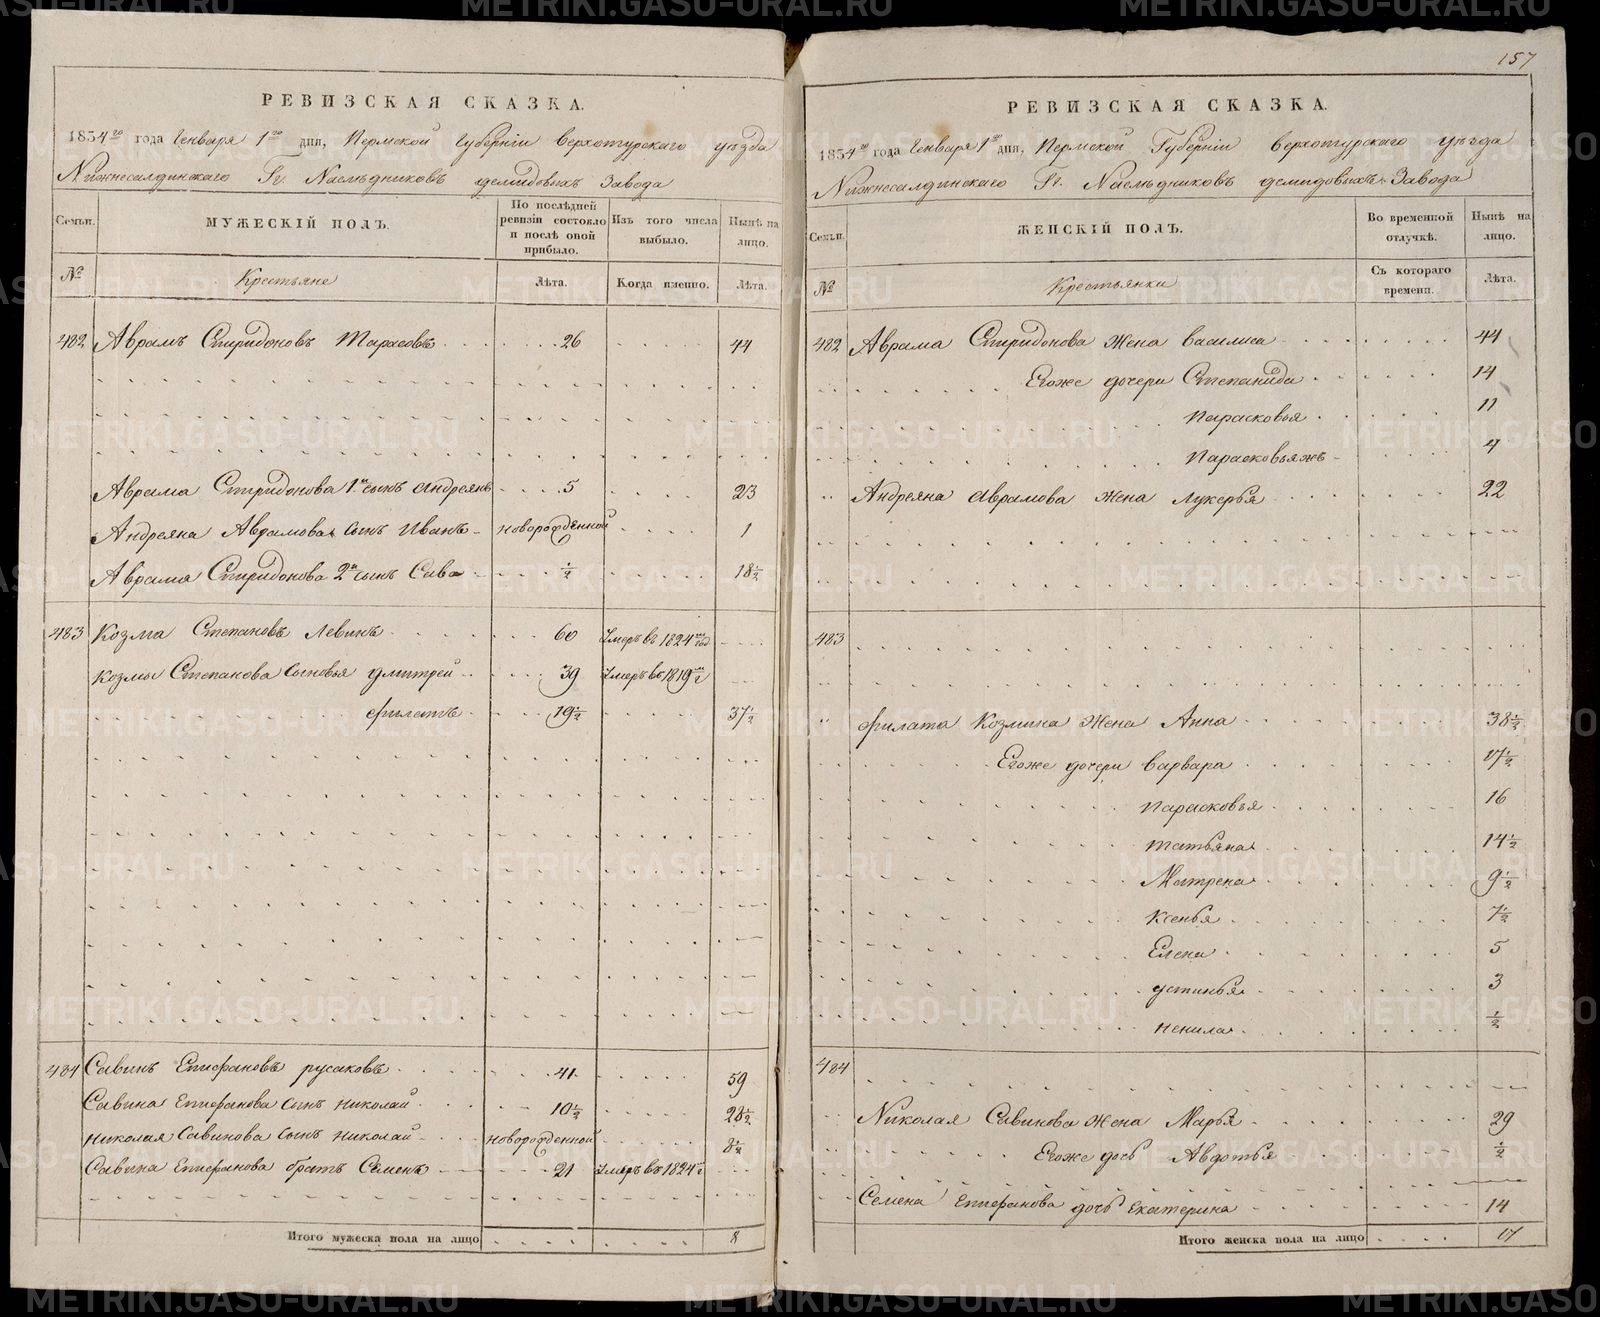 157
РЕВИЗСКАЯ СКАЗКА.
1834го года Генваря 1го дня, Пермской Губерніи Верхотурскаго уѣзда
Нижнесалдинскаго Гг. Наслѣдниковъ Демидовыхъ Завода
Семьи.
МУЖЕСКІЙ ПОЛЪ.
По послѣдней ревизіи состояло и послѣ оной прибыло.
Изъ того числа выбыло.
Нынѣ на лицо.
№
Крестьяне
Лѣта.
Когда именно.
Лѣта.
482 Аврамъ Спиридоновъ Тарасовъ 26 44
Аврама Спиридонова 1й сынъ Андреянъ 5 23
Андреяна Аврамова сынъ Иванъ новорожденной 1
Аврама Спиридонова 2й сынъ Сава ½ 18½
483 Козма Степановъ Левинъ 60 Умеръ въ 1824м год
Козмы Степанова сыновья Дмитрей 39 Умеръ въ 1819м г
Филатъ 19½ 37½
484 Савинъ Епифановъ Русаковъ 41 59
Савина Епифанова сынъ Николай 10½ 28½
Николая Савинова сынъ Николай новорожденной 8½
Савина Епифанова братъ Семенъ 21 Умеръ въ 1824м г
Итого мужеска пола на лицо 8
РЕВИЗСКАЯ СКАЗКА.
1834го года Генваря 1го дня, Пермской Губерніи Верхотурскаго уѣзда
Нижнесалдинскаго Гг. Наслѣдниковъ Демидовыхъ Завода
Семьи.
ЖЕНСКІЙ ПОЛЪ.
Во временной отлучкѣ.
Нынѣ на лицо.
№
Крестьянки
Съ котораго времени.
Лѣта.
482 Аврама Спиридонова жена Василиса 44
Егоже дочери Степанида 14
Парасковья 11
Парасковьяжъ 4
Андреяна Аврамова жена Лукерья 22
483
Филата Козмина жена Анна 38½
Егоже дочери Варвара 17½
Парасковья 16
Татьяна 14½
Матрена 9½
Ксенья 7½
Елена 5
Устинья 3
Ненила ½
484
Николая Савинова жена Марья 29
Егоже дочь Авдотья ½
Семена Епифанова дочь Екатерина 14
Итого женска пола на лицо 17
METRIKI.GASO-URAL.RU